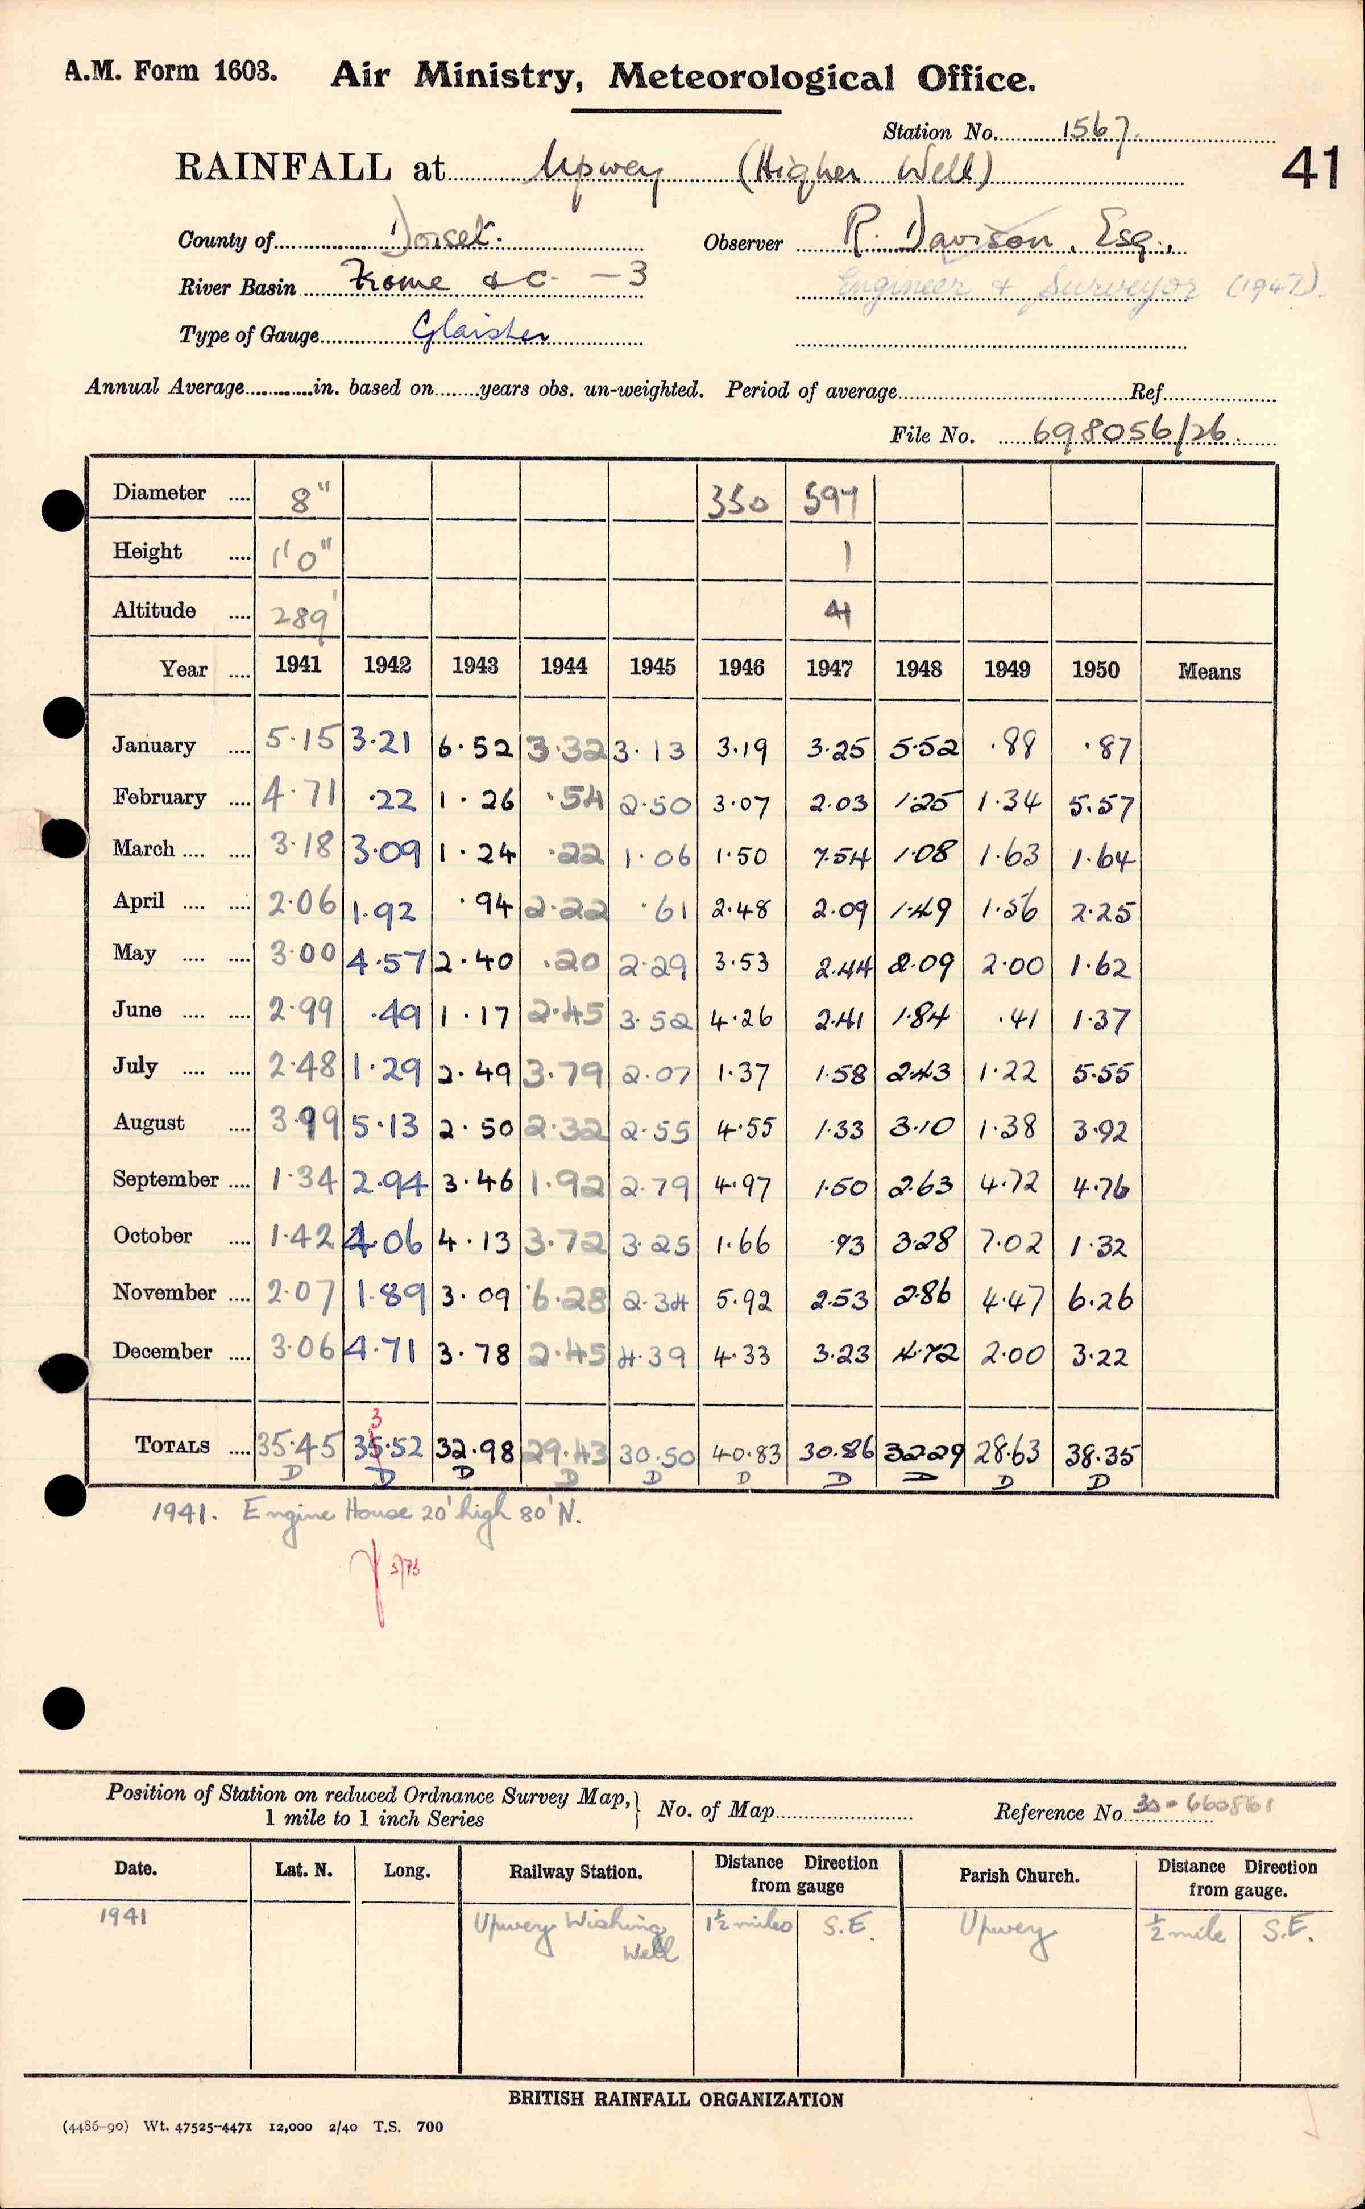 A.M. Form 1603. Air Ministry, Meteorological Office.
Station No. 1567.
RAINFALL at Upwey (Higher Well)
41
County of Dorset. Observer R. Davison, Esq.,
River Basin Frome &c. - 3 Engineer & Surveyor (1947).
Type of Gauge Glaisher
Annual Average in. based on years obs. un-weighted. Period of average Ref.
File No. 698056/26.
Diameter .... 8" 350 597
Height .... 1'0" 1
Altitude .... 289'
Year .... 1941 1942 1943 1944 1945 1946 1947 1948 1949 1950 Means
January .... 5.15 3.21 6.52 3.32 3.13 3.19 3.25 5.52 .88 .87
February .... 4.71 .22 1.26 .54 2.50 3.07 2.03 1.25 1.34 5.57
March .... .... 3.18 3.09 1.24 .22 1.06 1.50 7.54 1.08 1.63 1.64
April .... .... 2.06 1.92 .94 2.22 .61 2.48 2.09 1.49 1.56 2.25
May .... .... 3.00 4.57 2.40 .20 2.29 3.53 2.44 2.09 2.00 1.62
June .... .... 2.99 .49 1.17 2.45 3.52 4.26 2.41 1.84 .41 1.37
July .... .... 2.48 1.29 2.49 3.79 2.07 1.37 1.58 2.43 1.22 5.55
August .... 3.99 5.13 2.50 2.32 2.55 4.55 1.33 3.10 1.38 3.92
September .... 1.34 2.94 3.46 1.92 2.79 4.97 1.50 2.63 4.72 4.76
October .... 1.42 4.06 4.13 3.72 3.25 1.66 .93 3.28 7.02 1.32
November .... 2.07 1.89 3.09 6.28 2.34 5.92 2.53 2.86 4.47 6.26
December .... 3.06 4.71 3.78 2.45 4.39 4.33 3.23 4.72 2.00 3.22
3
TOTALS .... 35.45 35.52 32.98 29.43 30.50 40.83 30.86 32.29 28.63 38.35
D D D D D D D D D D
1941. Engine House 20' high 80' N.
Position of Station on reduced Ordnance Survey Map, 1 mile to 1 inch Series } No. of Map Reference No. 30 = 660861
Date. Lat. N. Long. Railway Station. Distance Direction from gauge Parish Church. Distance Direction from gauge.
1941 Upwey Wishing Well 1½ miles S.E. Upwey ½ mile S.E.
BRITISH RAINFALL ORGANIZATION
(4486-90) Wt. 47525-4471 12,000 2/40 T.S. 700